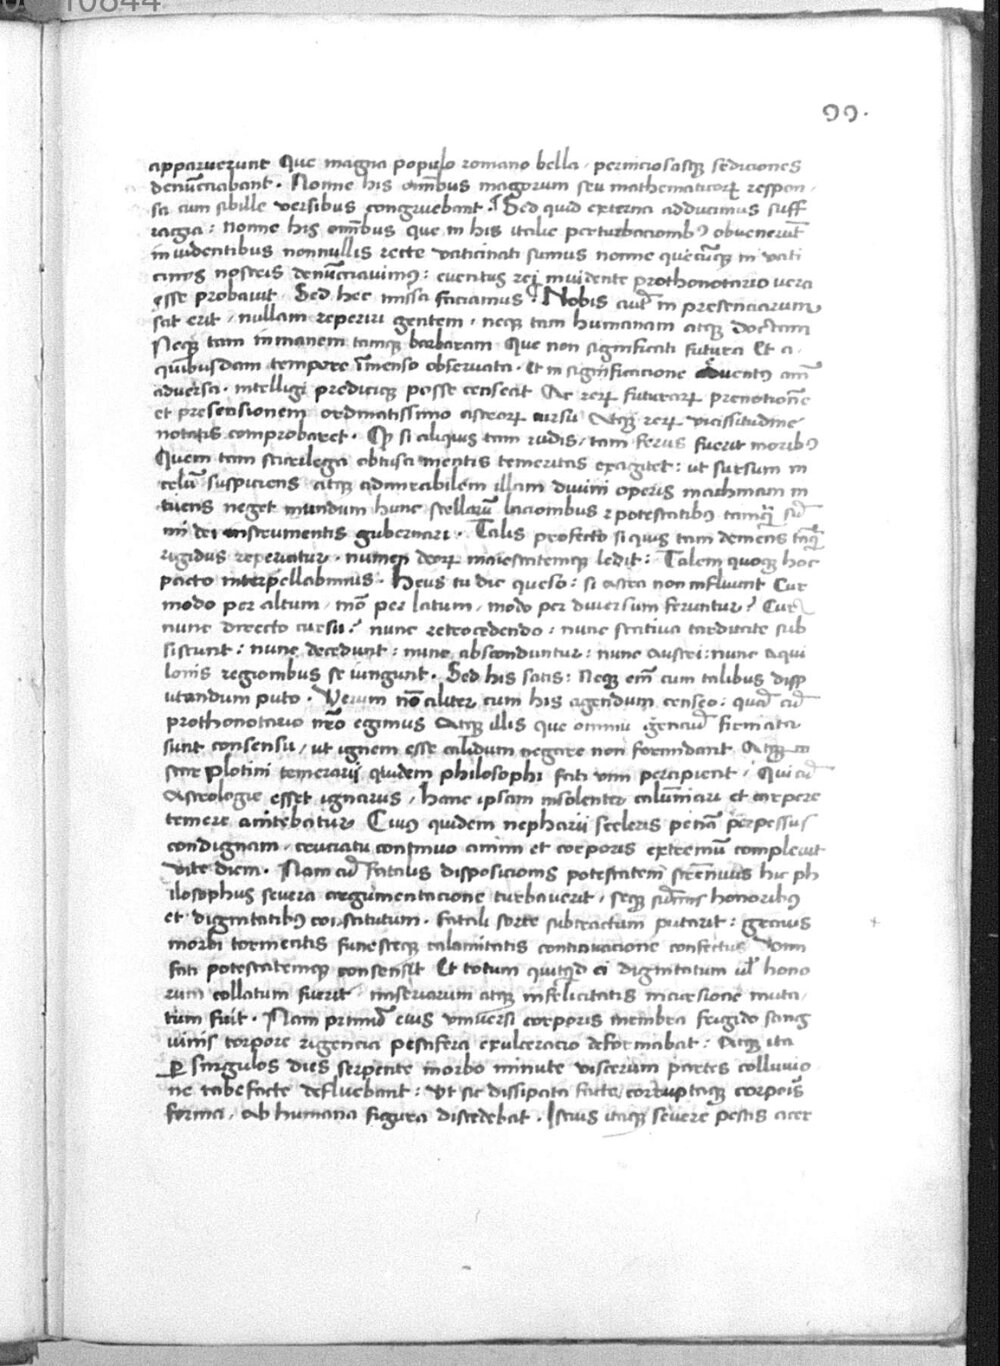 10844
99.
apparuerunt Que magna populo romano bella / perniciosasqȝ sediciones
denūciabant . Nonne his om̄ibus magorum seu mathematicorꝝ respon /
sa cum sibille versibus congruebant .¶ Sed quid externa adducimus suff
ragia : nonne his om̄ibus que in his italie perturbacionibꝰ obuenerūt
inuidentibus nonnullis recte vaticinati sumus nonne quecūqȝ in vati
cinijs nostris denūciauimꝰ : euentus rej inuidente prothonotario vera
esse probauit Sed hec missa faciamus ¶ Nobis aūt in presenciarum
sat erit / nullam reperiri gentem / neqȝ tam humanam atqȝ doctam
Neqȝ tam inmanem tamqȝ barbaram Que non significari futura Et a /
quibusdam tempore īmenso obseruata . Et in significacione aduentꝰ
aduersa . intelligi prediciqȝ posse censeat Ac rerꝝ futurarꝝ prenotionē
et presensionem ordinatissimo astrorꝝ cursu Atqȝ rerꝝ vicissitudine
notatis comprobaret . Qȝ si aliquis tam rudis / tam ferus fuerit moribꝰ
Quem tam sacrilega obtusa mentis temeritas exagitet : ut sursum in
celū suspiciens atqȝ admirabilem illam diuini operis machinam in
tuens neget mundum hunc stellarū lacionibus ⁊ potestatibꝰ tamqȝ sū
mi dei instrumentis gubernari . Talis profecto si quis tam demens tāqȝ
rigidus reperiatur . numen deorꝝ maiestatemqȝ ledit : Talem quoqȝ hoc
pacto interpellabimus . Heus tu dic queso : si astra non influunt Cur
modo per altum / mō per latum / modo per diuersum feruntur ? Cur
nunc directo cursu : nunc retrocedendo : nunc statiua tarditate sub
sistunt : nunc decedunt : nunc absconduntur : nunc austri : nunc aqui
lonis regionibus se iungunt . Sed his satis : Neqȝ em̄ cum talibus disp
utandum puto . Verum nō aliter cum his agendum censeo : quā cū
prothonotario nr̄o egimus Atqȝ illis que omniū genciū firmata
sunt consensu / ut ignem esse calidum negare non formidant Atqȝ
Plotini temerarij quidem philosophi fati vim percipient / Qui cū
Astrologie esset ignarus / hanc ipsam insolenter calūniari et carpere
temere nitebatur Cuiꝰ quidem nepharii sceleris penā perpessus
condignam / cruciatu continuo animi et corporis extremū compleuit
vite diem . Nam cū fatalis disposicionis potestatem strēnuus hic ph
ilosophus seuera argumentacione turbauerit / seqȝ sūmis honoribꝰ
et dignitatibꝰ constitutum . fatali sorte subtractum putarit : grauis
morbi tormentis funesteqȝ calamitatis continuacione confectus vim
fati potestatemqȝ consensit Et totum quitqd ei dignitatum ul̄ hono
rum collatum fuerit / miseriarum atqȝ infelicitatis incursione muta /
tum fuit . Nam primū eius vniuersi corporis membra frigido sang
uinis torpore rigencia pestifera exulceracio deformabat : Atqȝ ita
ꝑ singulos dies serpente morbo minute viscerum partes colluuio
ne tabefacte defluebant : Vt sic dissipata facte corruptaqȝ corporis
forma / ab humana figura discedebat . Istius itaqȝ seuere pestis acer